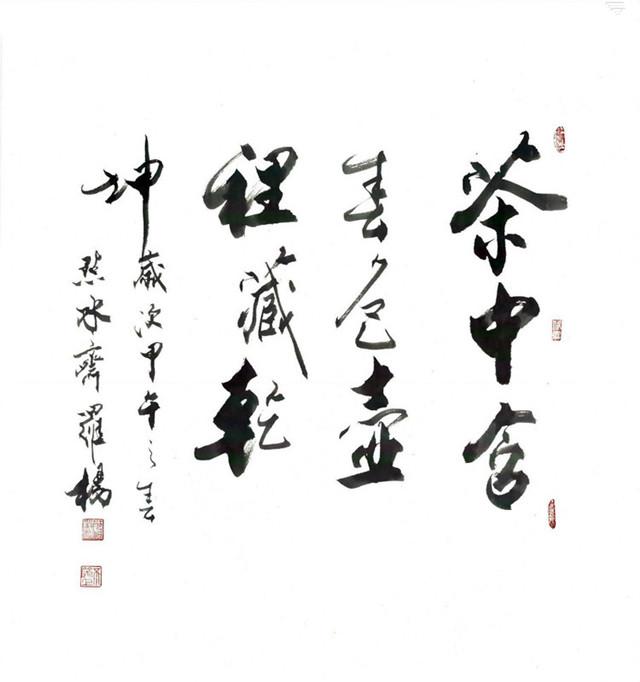 茶中含
春色壺
裡藏乾
坤 歲次甲午之春
齋羅楊